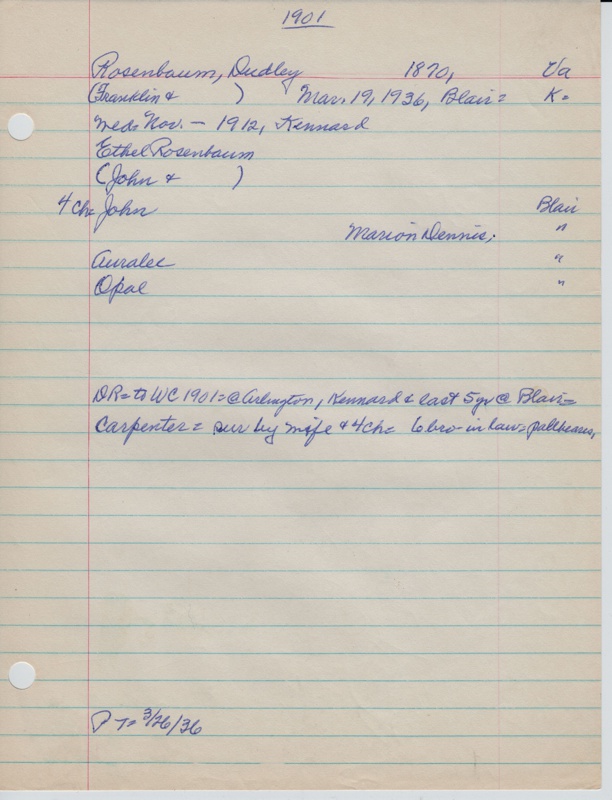 1901
Rosenbaum, Dudley 1870, Va
(Franklin & ) Mar. 19, 1936, Blair= K=
Med. Nov. - 1912, Kennard
Ethel Rosenbaum
(John & )
4 Ch= John Blair
Marion Dennis; "
Auralee "
Opal "
DR= to WC 1901= @ Arlington, Kennard & last 5 yr @ Blair=
Carpenter= sur by wife & 4 ch= 6 bro-in law= pallbearers,
PT= 3/26/36